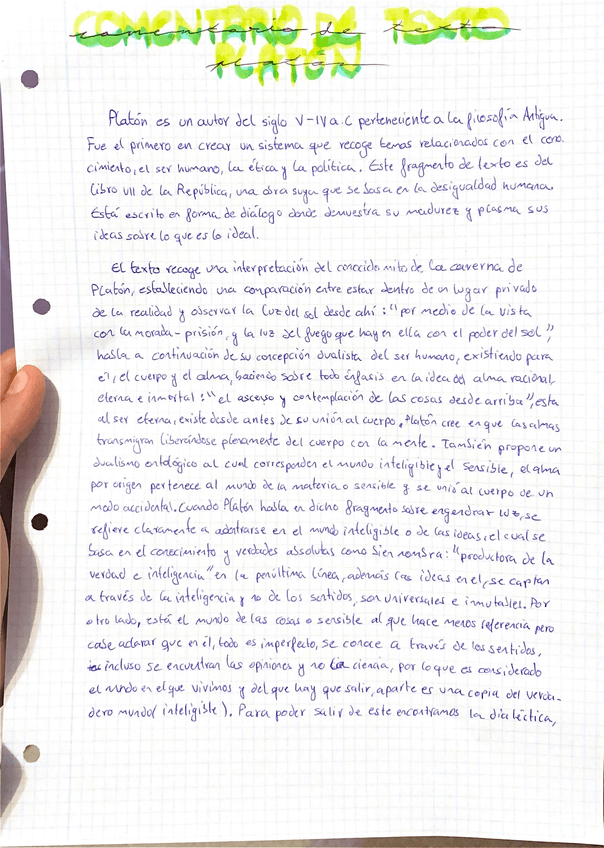 COMENTARIO DE TEXTO
comentario de texto
PLATÓN
platón
Platón es un autor del siglo V-IV a.C perteneciente a la filosofía Antigua.
Fue el primero en crear un sistema que recoge temas relacionados con el cono-
cimiento, el ser humano, la ética y la política. Este fragmento de texto es del
libro VII de la República, una obra suya que se basa en la desigualdad humana.
Está escrito en forma de diálogo donde demuestra su madurez y plasma sus
ideas sobre lo que es lo ideal.
El texto recoge una interpretación del conocido mito de la caverna de
Platón, estableciendo una comparación entre estar dentro de un lugar privado
de la realidad y observar la luz del sol desde ahí: "por medio de la vista
con la morada-prisión, y la luz del fuego que hay en ella con el poder del sol",
habla a continuación de su concepción dualista del ser humano, existiendo para
él, el cuerpo y el alma, haciendo sobre todo énfasis en la idea del alma racional,
eterna e inmortal: "el ascenso y contemplación de las cosas desde arriba", esta
al ser eterna, existe desde antes de su unión al cuerpo. Platón cree en que las almas
transmigran liberándose plenamente del cuerpo con la mente. También propone un
dualismo ontológico al cual corresponden el mundo inteligible y el sensible, el alma
por origen pertenece al mundo de la materia o sensible y se unió al cuerpo de un
modo accidental. Cuando Platón habla en dicho fragmento sobre engendrar luz, se
refiere claramente a adentrarse en el mundo inteligible o de las ideas, el cual se
basa en el conocimiento y verdades absolutas como bien nombra: "productora de la
verdad e inteligencia" en la penúltima línea, además las ideas en él, se captan
a través de la inteligencia y no de los sentidos, son universales e inmutables. Por
otro lado, está el mundo de las cosas o sensible al que hace menos referencia pero
cabe aclarar que en él, todo es imperfecto, se conoce a través de los sentidos,
incluso se encuentran las opiniones y no la ciencia, por lo que es considerado
el mundo en el que vivimos y del que hay que salir, aparte es una copia del verda-
dero mundo (inteligible). Para poder salir de este encontramos la dialéctica,